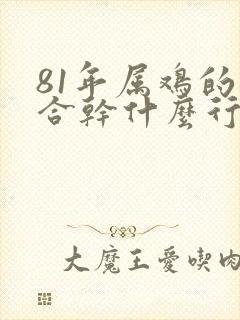 81年属鸡的
合幹什麼行
大魔王愛喫肉